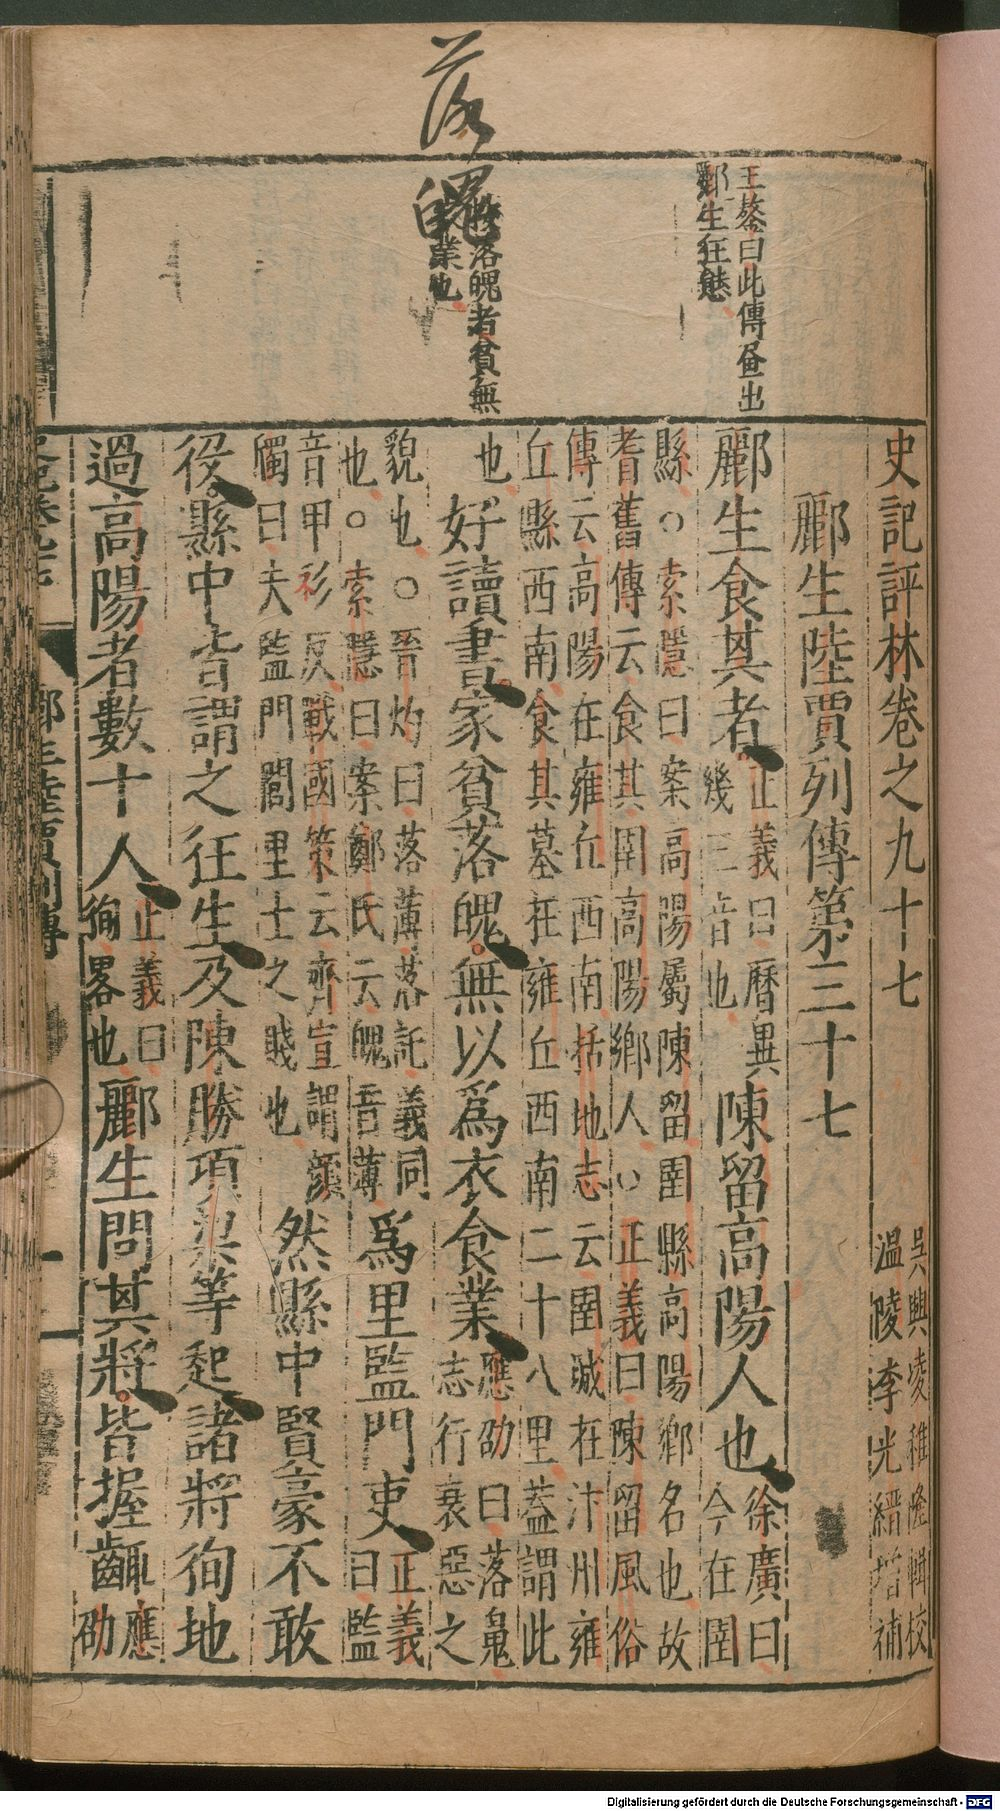 落魄
王鏊曰此傳𦘕出
酈生狂態
按落魄者貧無
業也
史記評林卷之九十七
吳興凌稚隆輯校
溫陵李光縉增補
酈生陸賈列傳第三十七
酈生食其者
正義曰曆異
幾三音也
陳留高陽人也
徐廣曰
今在圉
縣○索隱曰案高陽屬陳留圉縣高陽鄉名也故
耆舊傳云食其圉高陽鄉人○正義曰陳留風俗
傳云高陽在雍丘西南括地志云圉城在汴州雍
丘縣西南食其墓在雍丘西南二十八里蓋謂此
也
好讀書家貧落魄無以爲衣食業
應劭曰落魄
志行衰惡之
貌也○晉灼曰落薄落託義同
也○索隱曰案鄭氏云魄音薄
爲里監門吏
正義
曰監
音甲衫反戰國策云齊宣謂顏
斶曰夫監門閭里士之賤也
然縣中賢豪不敢
役縣中皆謂之狂生及陳勝項梁等起諸將徇地
過高陽者數十人
正義曰
徇畧也
酈生問其將皆握齱
應
劭
酈生陸賈列傳
一
Digitalisierung gefördert durch die Deutsche Forschungsgemeinschaft - DFG